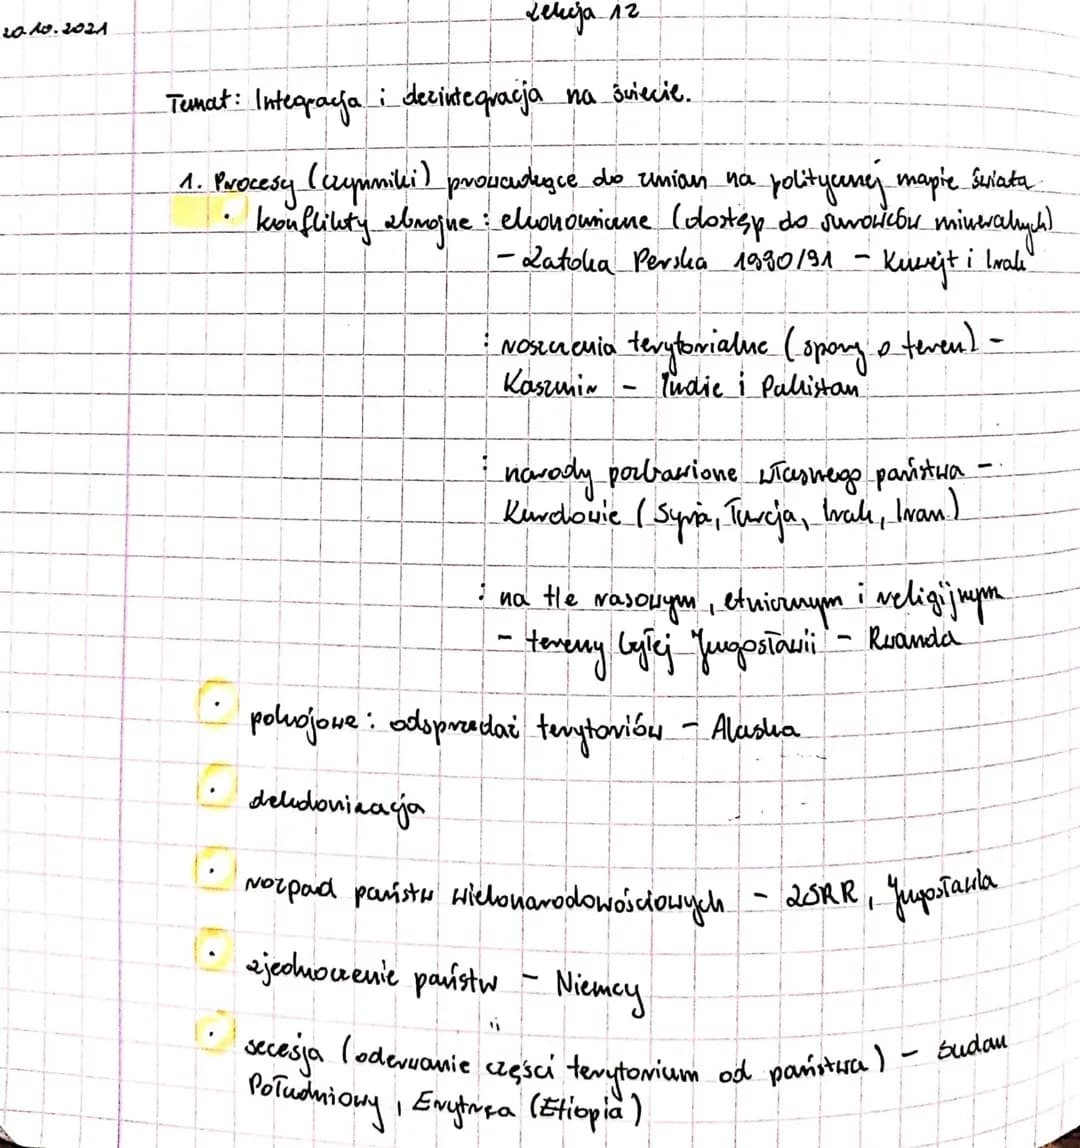 Lekcja 12
20.10.2021
Temat: Integracja i dezintegracja na świecie.
1. Procesy (czynniki) prowadzące do zmian na politycznej mapie świata
· konflikty zbrojne : ekonomiczne (dostęp do surowców mineralnych)
- Zatoka Perska 1990/91 - Kuwejt i Irak
: roszczenia terytorialne (spory o teren) -
Kaszmir - Indie i Pakistan
: narody pozbawione własnego państwa -
Kurdowie (Syria, Turcja, Irak, Iran)
: na tle rasowym, etnicznym i religijnym
- tereny byłej Jugosławii - Rwanda
· pokojowe : odsprzedać terytoriów - Alaska
· dekolonizacja
· rozpad państw wielonarodowościowych - ZSRR, Jugosławia
· zjednoczenie państw - Niemcy
· secesja (oderwanie części terytorium od państwa) - Sudan
Południowy, Erytrea (Etiopia)